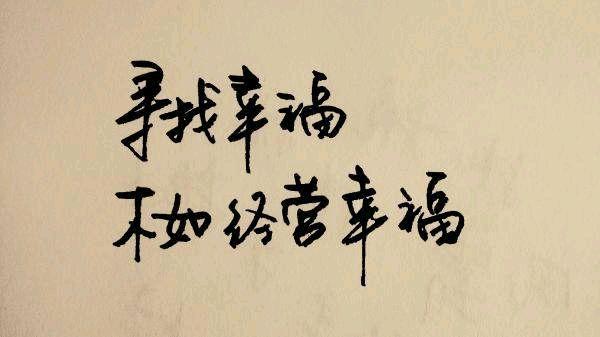 寻找幸福
不如经营幸福